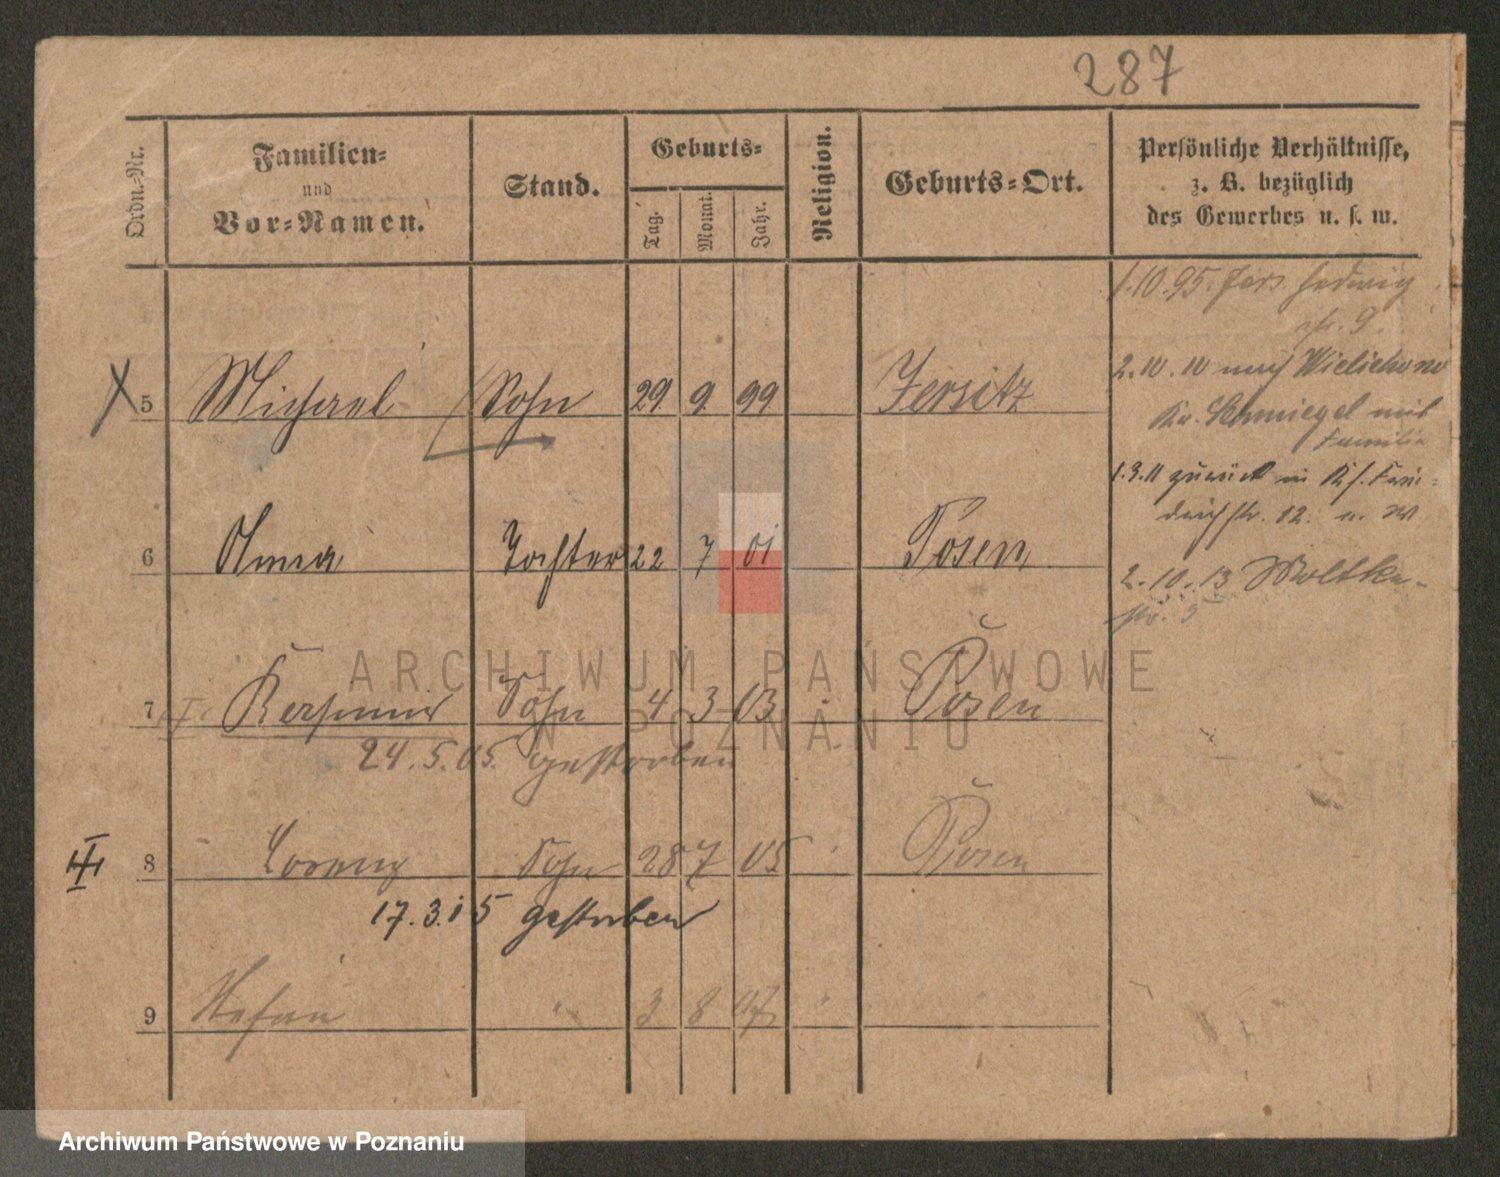 287
Ordn.-Nr.
Familien-
und
Vor-Namen.
Stand.
Geburts-
Tag.
Monat.
Jahr.
Religion.
Geburts-Ort.
Persönliche Verhältnisse,
z. B. bezüglich
des Gewerbes u. s. w.
1.10.95. Jers. Hedwig
str. 9.
5 Michael Sohn 29 9 99 Jersitz
2.10.10 nach Wielichowo
Kr. Schmiegel mit
Familie
1.3.11 zurück in Frie-
drichstr. 12.
6 Anna Tochter 22 7 01 Posen
2.10.13 Moltke-
str. 5
7 Kasimir Sohn 4 3 03 Posen
24.5.05. gestorben
8 Lorenz Sohn 28 7 05 Posen
17.3.15 gestorben
9 Stefan " 3 8 07
ARCHIWUM PAŃSTWOWE
W POZNANIU
Archiwum Państwowe w Poznaniu